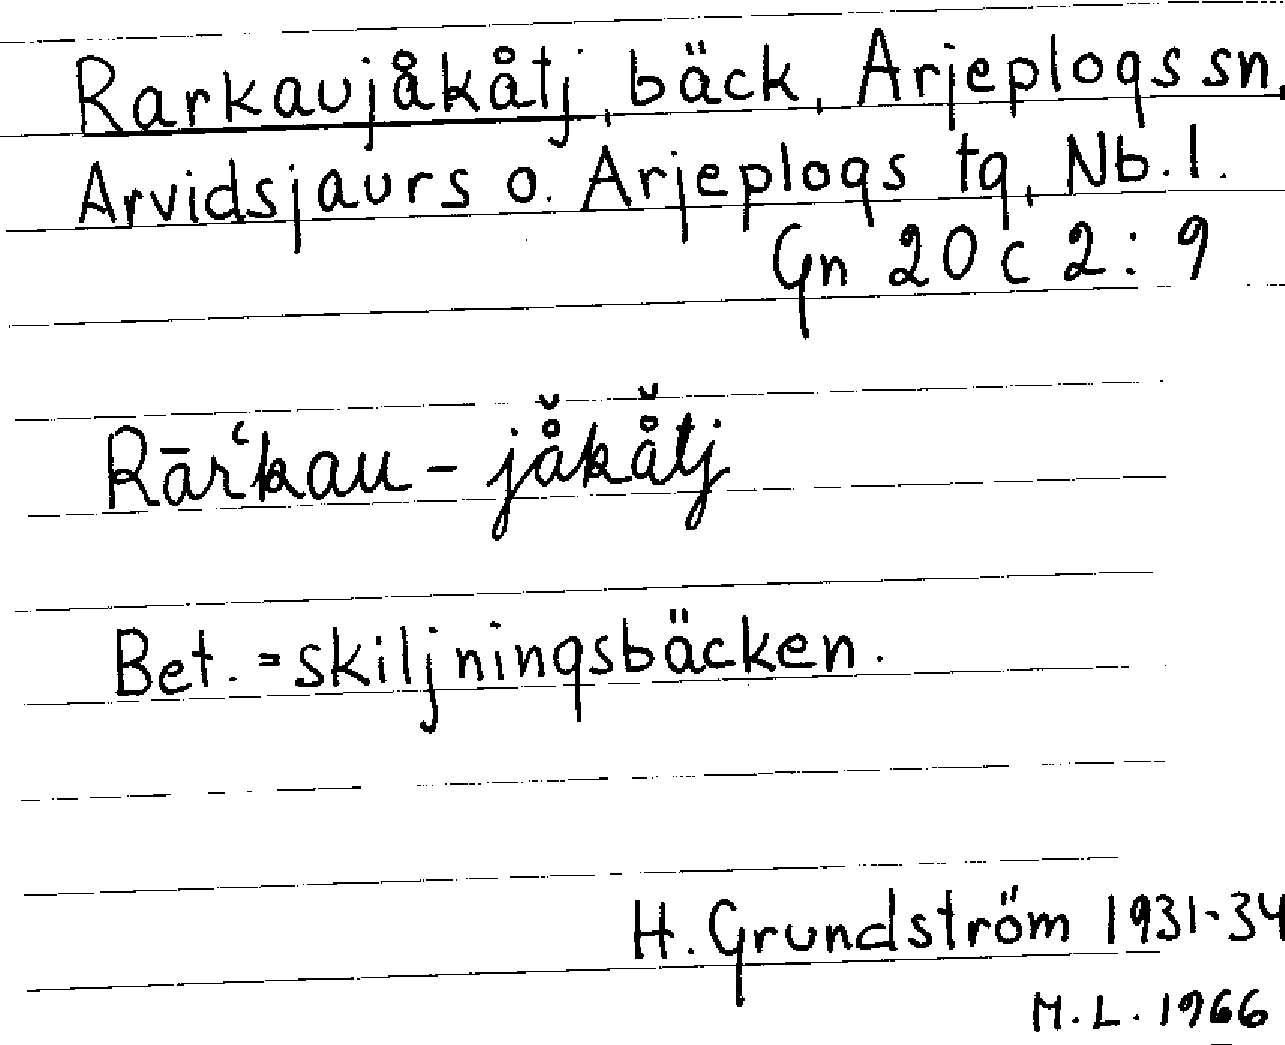 Rarkaujåkåtj, bäck, Arjeplogs sn,
Arvidsjaurs o. Arjeplogs tg, Nb. l.
Gn 20 c 2: 9
Rārʿkau - jå̆kå̆tj
Bet. = skiljningsbäcken.
H. Grundström 1931-34
M. L. 1966